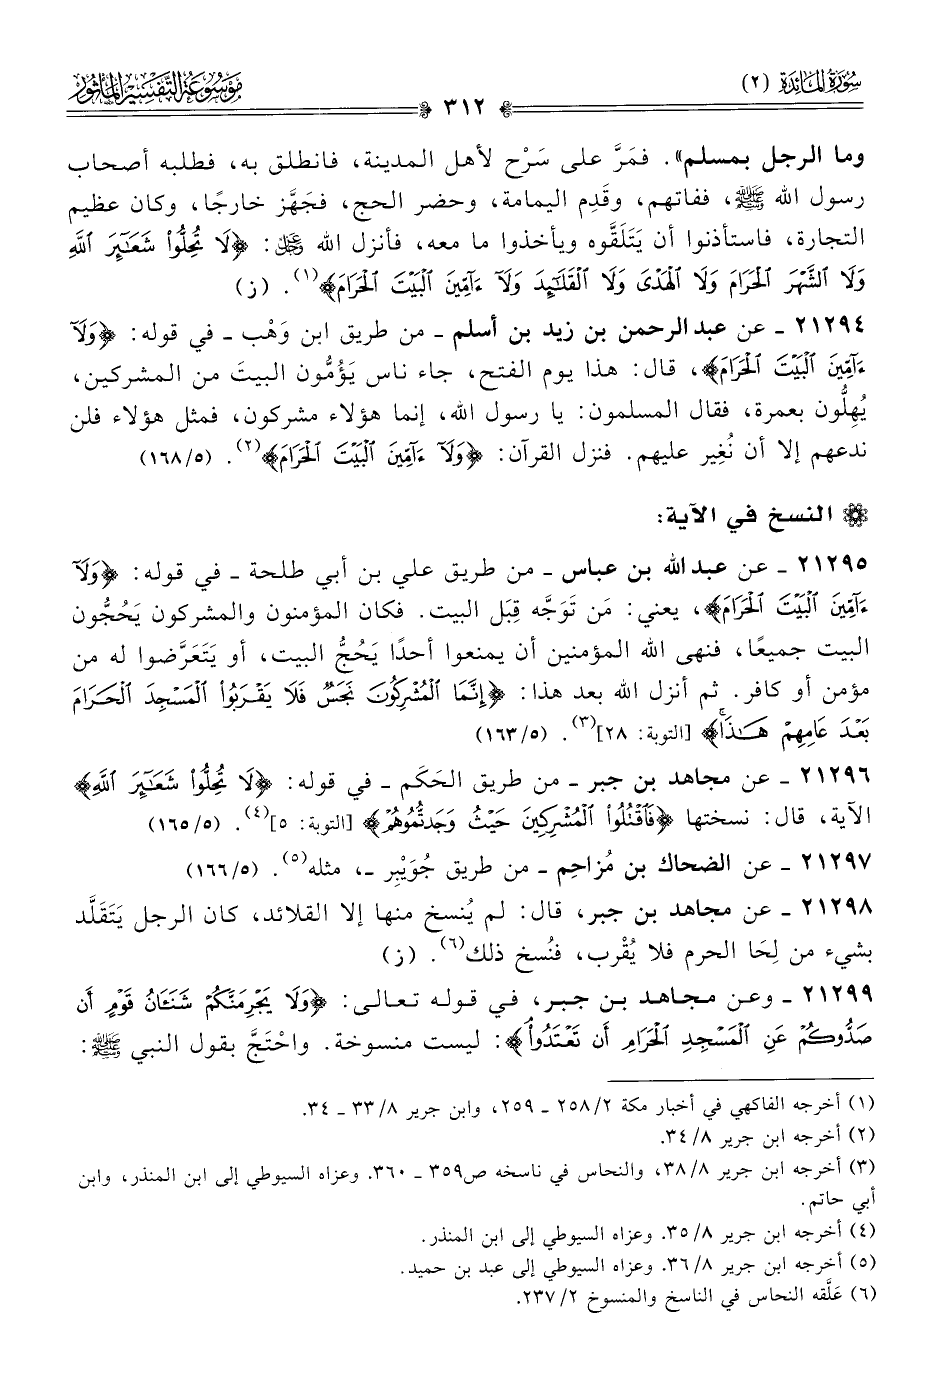 سُورَةُ المَائِدَةِ (٢)
٣١٢
مَوْسُوعَةُ التَّفْسِيرِ المَأْثُورِ
وما الرجل بمسلم». فمَرَّ على سَرْح لأهل المدينة، فانطلق به، فطلبه أصحاب
رسول الله ﷺ، ففاتهم، وقَدِم اليمامة، وحضر الحج، فجَهَّز خارجًا، وكان عظيم
التجارة، فاستأذنوا أن يَتَلَقَّوه ويأخذوا ما معه، فأنزل الله ﷻ: ﴿لَا تُحِلُّوا۟ شَعَٰٓئِرَ ٱللَّهِ
وَلَا ٱلشَّهْرَ ٱلْحَرَامَ وَلَا ٱلْهَدْىَ وَلَا ٱلْقَلَٰٓئِدَ وَلَآ ءَآمِّينَ ٱلْبَيْتَ ٱلْحَرَامَ﴾(١). (ز)
٢١٢٩٤ ـ عن عبد الرحمن بن زيد بن أسلم ـ من طريق ابن وَهْب ـ في قوله: ﴿وَلَآ
ءَآمِّينَ ٱلْبَيْتَ ٱلْحَرَامَ﴾، قال: هذا يوم الفتح، جاء ناس يَؤُمُّون البيتَ من المشركين،
يُهِلُّون بعمرة، فقال المسلمون: يا رسول الله، إنما هؤلاء مشركون، فمثل هؤلاء فلن
ندعهم إلا أن نُغِير عليهم. فنزل القرآن: ﴿وَلَآ ءَآمِّينَ ٱلْبَيْتَ ٱلْحَرَامَ﴾(٢). (١٦٨/٥)
النسخ في الآية:
٢١٢٩٥ ـ عن عبد الله بن عباس ـ من طريق علي بن أبي طلحة ـ في قوله: ﴿وَلَآ
ءَآمِّينَ ٱلْبَيْتَ ٱلْحَرَامَ﴾، يعني: مَن تَوَجَّه قِبَل البيت. فكان المؤمنون والمشركون يَحُجُّون
البيت جميعًا، فنهى الله المؤمنين أن يمنعوا أحدًا يَحُجُّ البيت، أو يَتَعَرَّضوا له من
مؤمن أو كافر. ثم أنزل الله بعد هذا: ﴿إِنَّمَا ٱلْمُشْرِكُونَ نَجَسٌ فَلَا يَقْرَبُوا۟ ٱلْمَسْجِدَ ٱلْحَرَامَ
بَعْدَ عَامِهِمْ هَٰذَا﴾ [التوبة: ٢٨](٣). (١٦٣/٥)
٢١٢٩٦ ـ عن مجاهد بن جبر ـ من طريق الحَكَم ـ في قوله: ﴿لَا تُحِلُّوا۟ شَعَٰٓئِرَ ٱللَّهِ﴾
الآية، قال: نسختها ﴿فَٱقْتُلُوا۟ ٱلْمُشْرِكِينَ حَيْثُ وَجَدتُّمُوهُمْ﴾ [التوبة: ٥](٤). (١٦٥/٥)
٢١٢٩٧ ـ عن الضحاك بن مُزاحِم ـ من طريق جُوَيْبِر ـ، مثله(٥). (١٦٦/٥)
٢١٢٩٨ ـ عن مجاهد بن جبر، قال: لم يُنسخ منها إلا القلائد، كان الرجل يَتَقَلَّد
بشيء من لِحَا الحرم فلا يُقْرب، فنُسخ ذلك(٦). (ز)
٢١٢٩٩ ـ وعن مجاهد بن جبر، في قوله تعالى: ﴿وَلَا يَجْرِمَنَّكُمْ شَنَـَٔانُ قَوْمٍ أَن
صَدُّوكُمْ عَنِ ٱلْمَسْجِدِ ٱلْحَرَامِ أَن تَعْتَدُوا۟﴾: ليست منسوخة. واحْتَجَّ بقول النبي ﷺ:
(١) أخرجه الفاكهي في أخبار مكة ٢/ ٢٥٨ ـ ٢٥٩، وابن جرير ٨/ ٣٣ ـ ٣٤.
(٢) أخرجه ابن جرير ٨/ ٣٤.
(٣) أخرجه ابن جرير ٨/ ٣٨، والنحاس في ناسخه ص٣٥٩ ـ ٣٦٠. وعزاه السيوطي إلى ابن المنذر، وابن
أبي حاتم.
(٤) أخرجه ابن جرير ٨/ ٣٥. وعزاه السيوطي إلى ابن المنذر.
(٥) أخرجه ابن جرير ٨/ ٣٦. وعزاه السيوطي إلى عبد بن حميد.
(٦) عَلَّقه النحاس في الناسخ والمنسوخ ٢/ ٢٣٧.